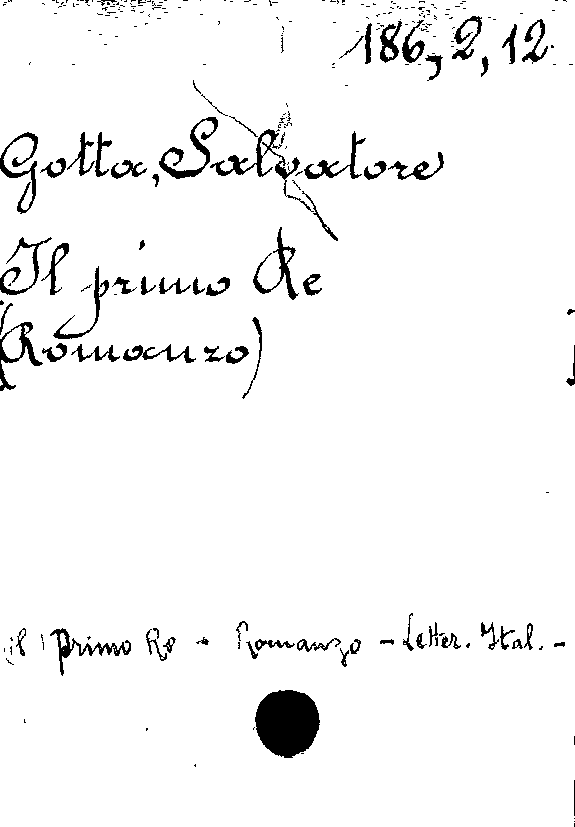 186, 2, 12
Gotta, Salvatore
Il primo Re
(Romanzo)
il primo Re - Romanzo - Letter. Ital. -